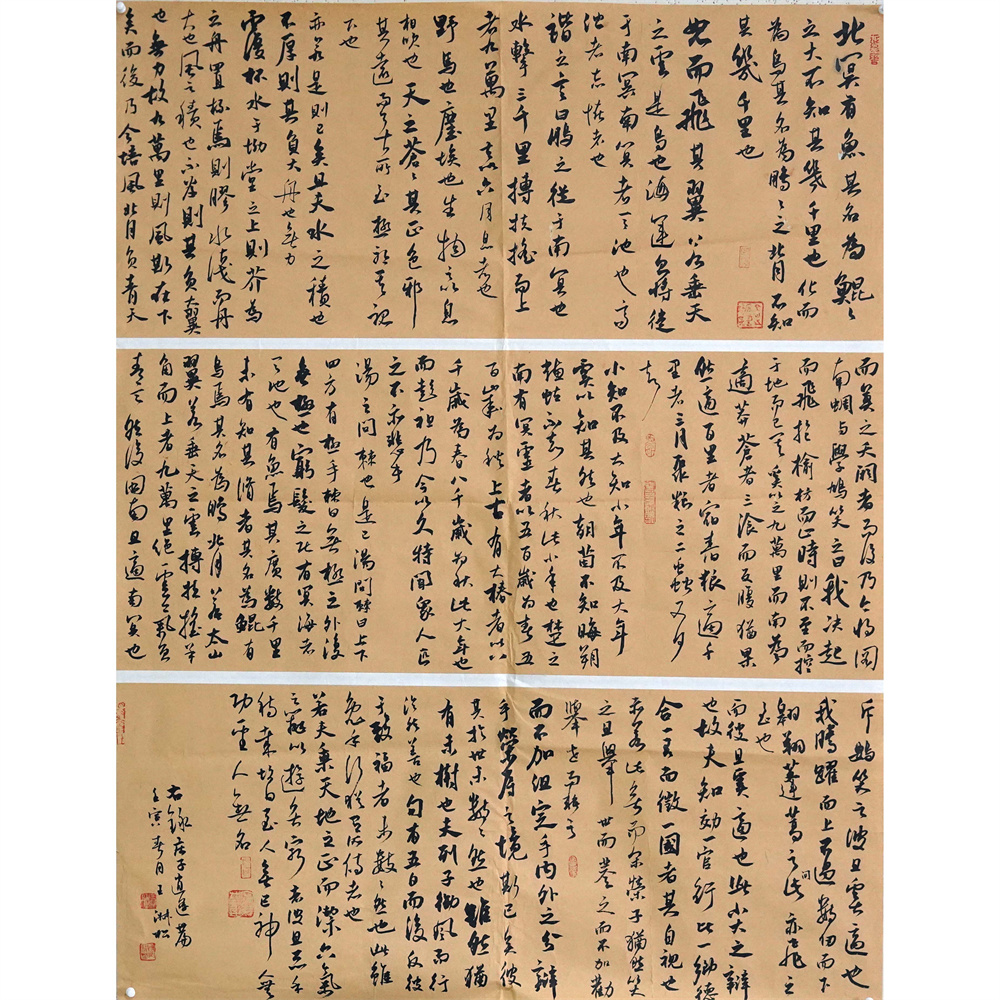 北冥有魚其名為鯤鯤
之大不知其幾千里也化而
為鳥其名為鵬鵬之背不知
其幾千里也
怒而飛其翼若垂天
之雲是鳥也海運則將徙
于南冥南冥者天池也齊
諧者志怪者也
諧之言曰鵬之徙于南冥也
水擊三千里摶扶搖而上
者九萬里去以六月息者也
野馬也塵埃也生物之以息
相吹也天之蒼蒼其正色邪
其遠而無所至極邪其視
下也
亦若是則已矣且夫水之積也
不厚則其負大舟也無力
覆杯水于坳堂之上則芥為
之舟置杯焉則膠水淺而舟
大也風之積也不厚則其負大翼
也無力故九萬里則風斯在下
矣而後乃今培風背負青天
而莫之夭閼者而後乃今將圖
南蜩與學鳩笑之曰我決起
而飛搶榆枋而止時則不至而控
于地而已矣奚以之九萬里而南為
適莽蒼者三湌而反腹猶果
然適百里者宿舂糧適千
里者三月聚糧之二蟲又何
知
小知不及大知小年不及大年
奚以知其然也朝菌不知晦朔
蟪蛄不知春秋此小年也楚之
南有冥靈者以五百歲為春五
百歲為秋上古有大椿者以八
千歲為春八千歲為秋此大年也
而彭祖乃今以久特聞眾人匹
之不亦悲乎
湯之問棘也是已湯問棘曰上下
四方有極乎棘曰無極之外復
無極也窮髮之北有冥海者
天池也有魚焉其廣數千里
未有知其脩者其名為鯤有
鳥焉其名為鵬背若太山
翼若垂天之雲摶扶搖羊
角而上者九萬里絕雲氣負
青天然後圖南且適南冥也
斥鴳笑之彼且奚適也
我騰躍而上不過數仞而下
翱翔蓬蒿之間此亦飛之
至也
而彼且奚適也此小大之辯
也故夫知效一官行比一鄉德
合一君而徵一國者其自視也
亦若此矣而宋榮子猶然笑
之且舉世而譽之而不加勸
舉世而非之
而不加沮定乎內外之分辯
乎榮辱之境斯已矣彼
其於世未數數然也雖然猶
有未樹也夫列子御風而行
泠然善也旬有五日而後反彼
于致福者未數數然也此雖
免乎行猶有所待者也
若夫乘天地之正而御六氣
之辯以遊無窮者彼且惡乎
待哉故曰至人無己神人無
功聖人無名
右錄莊子逍遙篇
壬寅春月王淋松